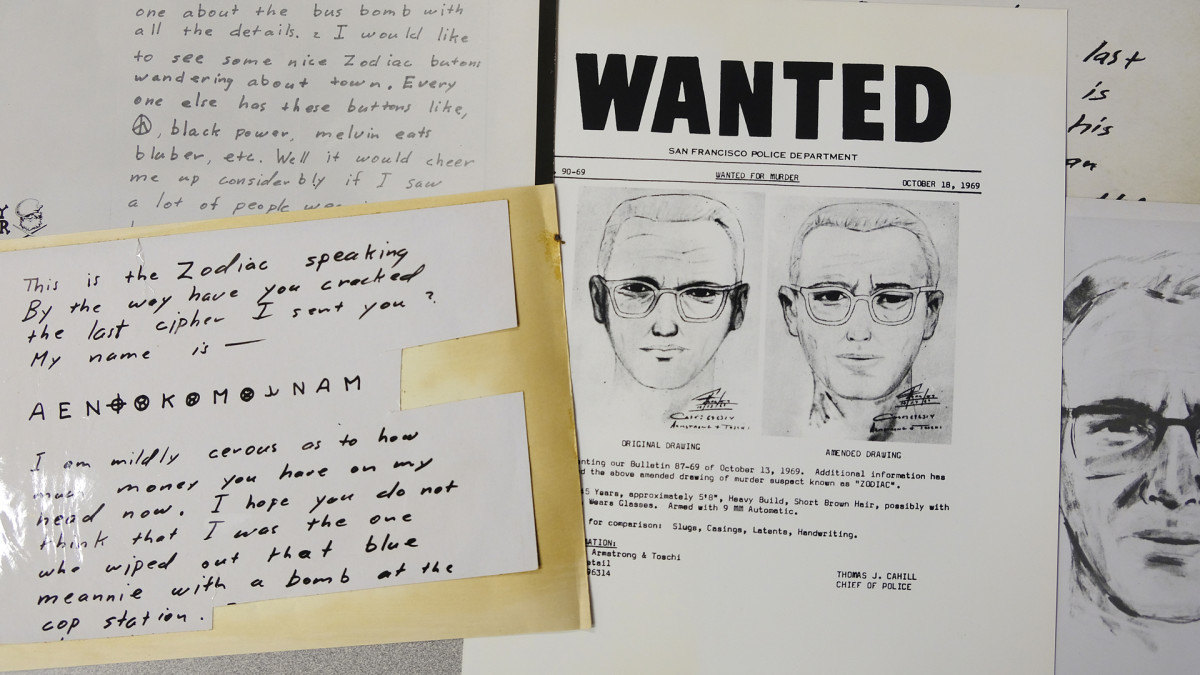 one about the bus bomb with
all the details. I would like
to see some nice Zodiac butons
wandering about town. Every
one else has these buttons like,
☮, black power, melvin eats
bluber, etc. Well it would cheer
me up considerbly if I saw
a lot of people
This is the Zodiac speaking
By the way have you cracked
the last cipher I sent you?
My name is —
AEN⌖⊗K⊗M⊗⅃NAM
I am mildly cerous as to how
much money you have on my
head now. I hope you do not
think that I was the one
who wiped out that blue
meannie with a bomb at the
cop station.
WANTED
SAN FRANCISCO POLICE DEPARTMENT
90-69 WANTED FOR MURDER OCTOBER 18, 1969
ORIGINAL DRAWING AMENDED DRAWING
nting our Bulletin 87-69 of October 13, 1969. Additional information has
d the above amended drawing of murder suspect known as "ZODIAC".
45 Years, approximately 5'8", Heavy Build, Short Brown Hair, possibly with
Wears Glasses. Armed with 9 MM Automatic.
for comparison: Slugs, Casings, Latents, Handwriting.
ATION:
Armstrong & Toschi
etail
96314
THOMAS J. CAHILL
CHIEF OF POLICE
last
is
his